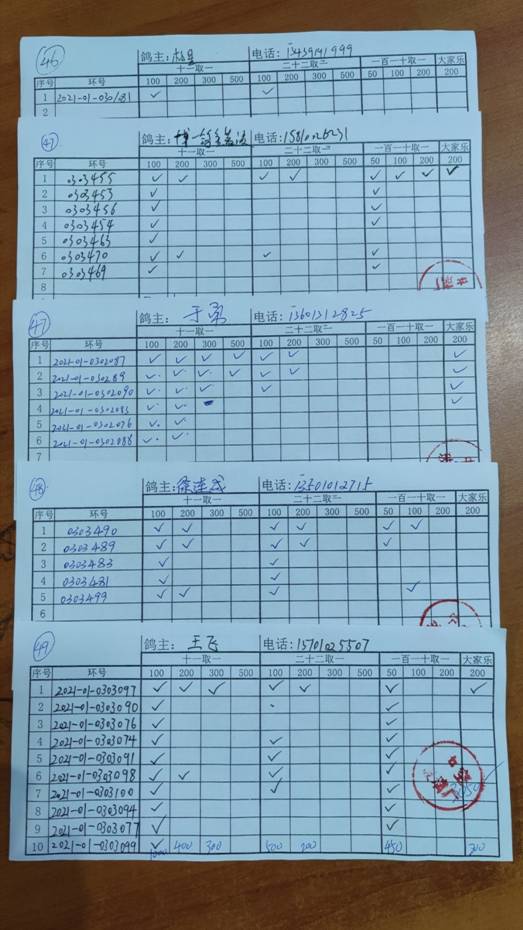 46 鸽主: 电话: 13439141999
十一取一 二十二取二 一百一十取一 大家乐
序号 环号 100 200 300 500 100 200 300 500 50 100 200 200
1 2021-01-030181 ✓ ✓
2
47 鸽主: 电话:
十一取一 二十二取二 一百一十取一 大家乐
序号 环号 100 200 300 500 100 200 300 500 50 100 200 200
1 0303455 ✓ ✓ ✓ ✓ ✓ ✓ ✓ ✓
2 0303453 ✓ ✓
3 0303456 ✓ ✓
4 0303454 ✓ ✓
5 0303463 ✓
6 0303470 ✓ ✓ ✓ ✓
7 0303469 ✓ ✓
8
47 鸽主: 于勇 电话: 13601312825
十一取一 二十二取二 一百一十取一 大家乐
序号 环号 100 200 300 500 100 200 300 500 50 100 200 200
1 2021-01-0302087 ✓ ✓ ✓ ✓ ✓ ✓ ✓
2 2021-01-0302089 ✓ ✓ ✓ ✓ ✓ ✓ ✓
3 2021-01-0302090 ✓ ✓ ✓ ✓ ✓
4 2021-01-0302083 ✓ ✓ ✓
5 2021-01-0302076 ✓ ✓
6 2021-01-0302088 ✓ ✓
48 鸽主: 徐连成 电话: 13501012715
十一取一 二十二取二 一百一十取一 大家乐
序号 环号 100 200 300 500 100 200 300 500 50 100 200 200
1 0303490 ✓ ✓ ✓ ✓ ✓ ✓
2 0303489 ✓ ✓ ✓ ✓ ✓
3 0303483 ✓ ✓
4 0303481 ✓ ✓
5 0303499 ✓ ✓ ✓ ✓
6
49 鸽主: 王飞 电话: 15701025507
十一取一 二十二取二 一百一十取一 大家乐
序号 环号 100 200 300 500 100 200 300 500 50 100 200 200
1 2021-01-0303097 ✓ ✓ ✓ ✓ ✓ ✓ ✓
2 2021-01-0303090 ✓ ✓
3 2021-01-0303076 ✓ ✓
4 2021-01-0303074 ✓ ✓ ✓
5 2021-01-0303091 ✓ ✓ ✓
6 2021-01-0303098 ✓ ✓ ✓ ✓
7 2021-01-0303100 ✓ ✓ ✓
8 2021-01-0303094 ✓ ✓
9 2021-01-0303077 ✓ ✓
10 2021-01-0303099 ✓ ✓
1000 400 300 500 200 450 200